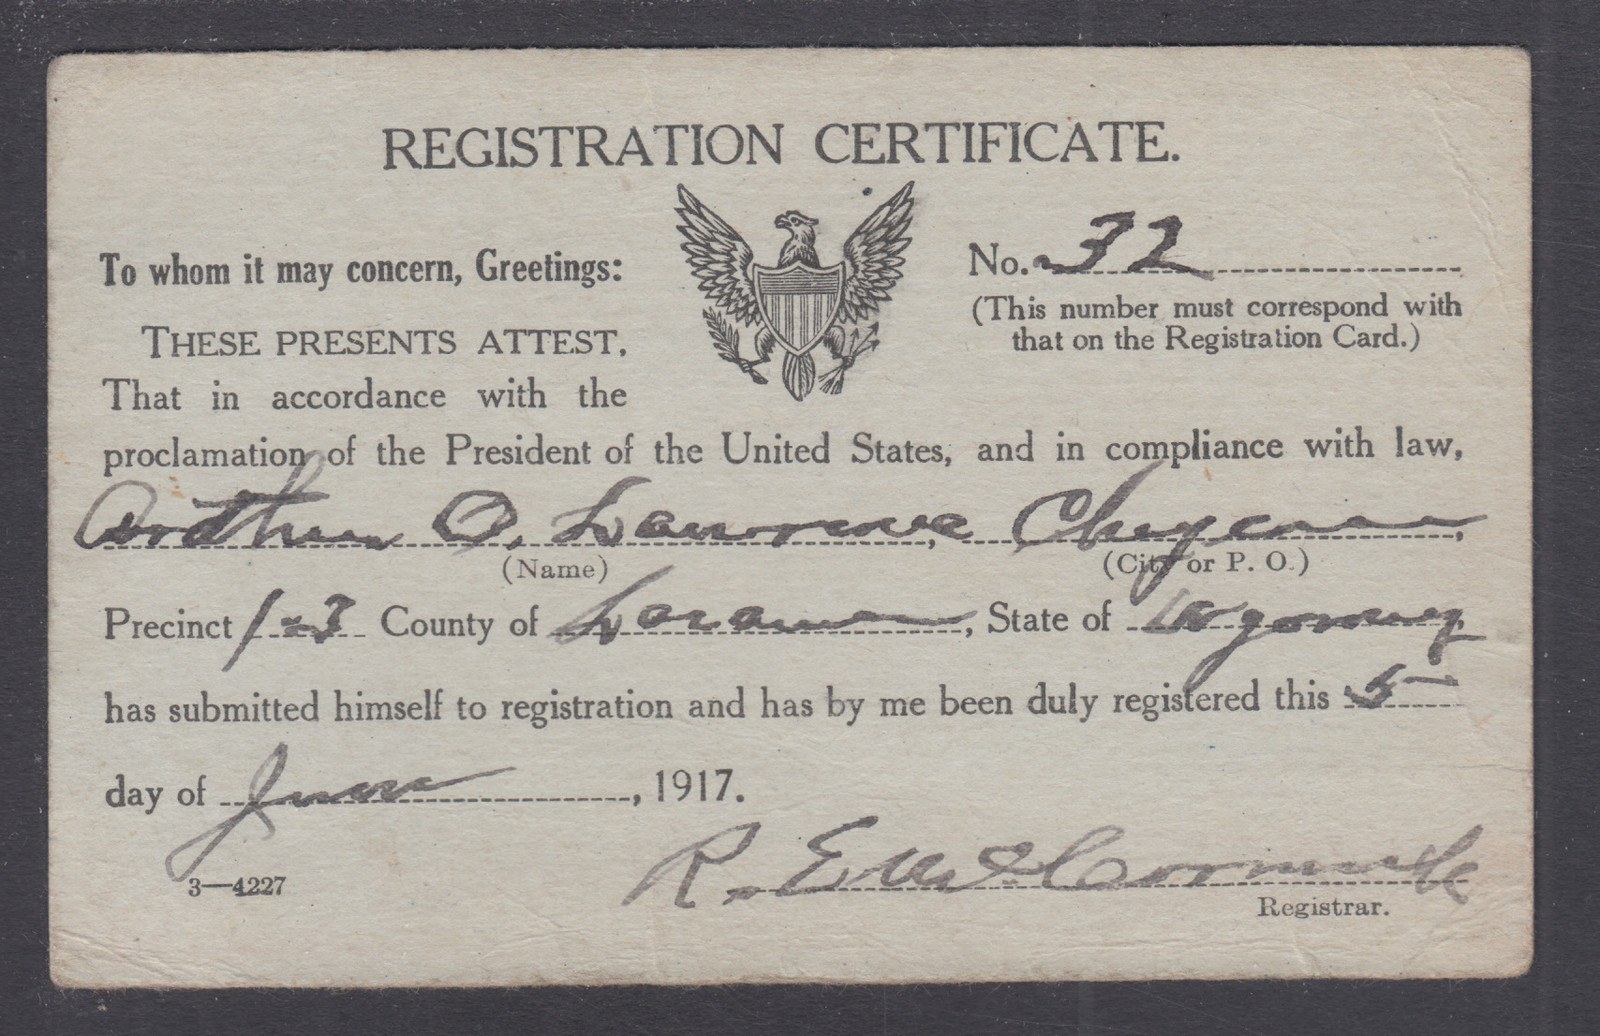 REGISTRATION CERTIFICATE.
To whom it may concern, Greetings:
No. 32
(This number must correspond with
that on the Registration Card.)
THESE PRESENTS ATTEST,
That in accordance with the
proclamation of the President of the United States, and in compliance with law,
Arthur O. Lawrence, Cheyenne,
(Name) (City or P. O.)
Precinct 1-3 County of Laramie, State of Wyoming
has submitted himself to registration and has by me been duly registered this 5
day of June, 1917.
R. E. McCormick
3—4227
Registrar.